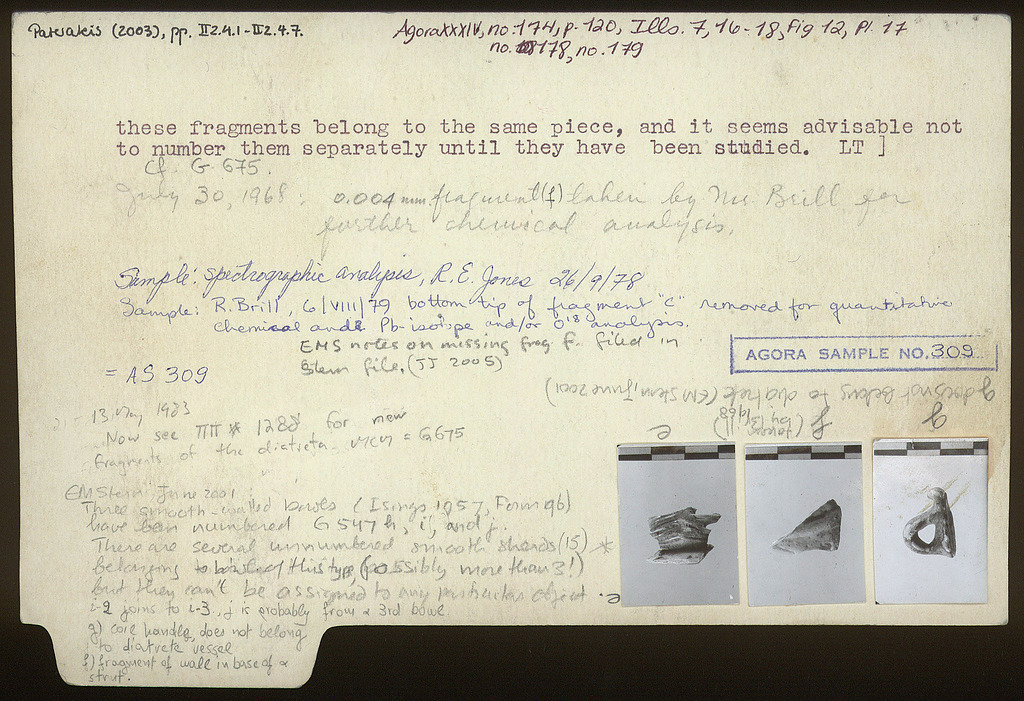 Paterakis (2003), pp. II2.4.1-II2.4.7.
Agora XXXIV, no. 174, p. 120, Ills. 7, 16-18, Fig 12, Pl. 17
no. 178, no. 179
these fragments belong to the same piece, and it seems advisable not
to number them separately until they have been studied. LT ]
Cf. G 675.
July 30, 1968: 0.004 mm. fragment (f) taken by Mr. Brill for
further chemical analysis.
Sample: spectrographic analysis, R. E. Jones 26/9/78
Sample: R. Brill, 6/VIII/79 bottom tip of fragment "C" removed for quantitative
chemical and Pb-isotope and/or O18 analysis.
EMS notes on missing frag f. filed in
Stern file, (JJ 2005)
AGORA SAMPLE NO. 309
= AS 309
g does not belong to diatrete (EM Stern, June 2001)
13 May 1983
Now see ΠΠ * 1288 for new
fragments of the diatreta = G 675
e
f
1968)
g
EM Stern June 2001:
Three smooth-walled bowls (Isings 1957, Form 96)
have been numbered G 547 h, i, and j.
There are several unnumbered smooth sherds (15) *
belonging to bowls of this type, (possibly more than 3!)
but they can't be assigned to any particular object.
i-2 joins to i-3, j is probably from a 3rd bowl.
g) core handle, does not belong
to diatrete vessel
f) fragment of wall in base of a
strut.